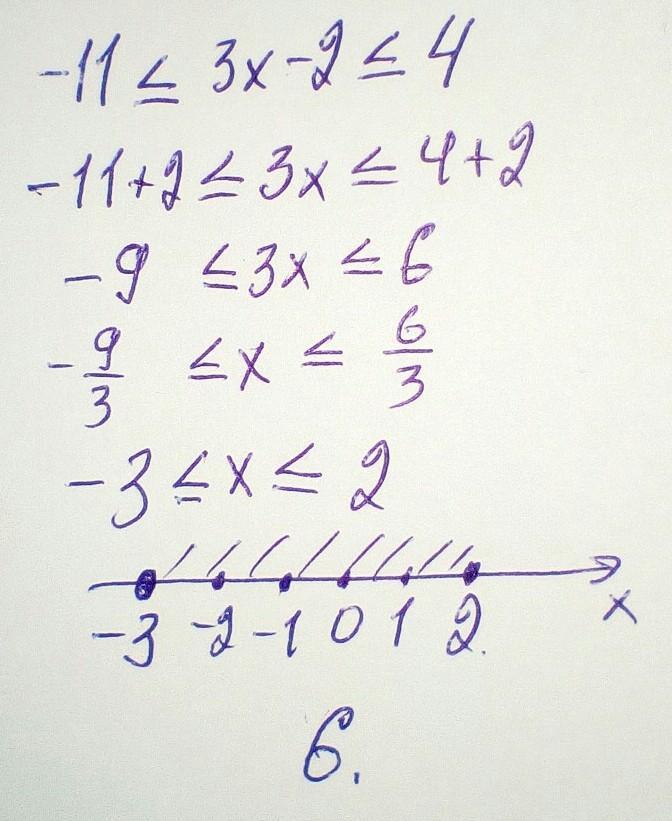 -11 ≤ 3x-2 ≤ 4
-11+2 ≤ 3x ≤ 4+2
-9 ≤ 3x ≤ 6
-9/3 ≤ x ≤ 6/3
-3 ≤ x ≤ 2
-3 -2 -1 0 1 2. x
6.